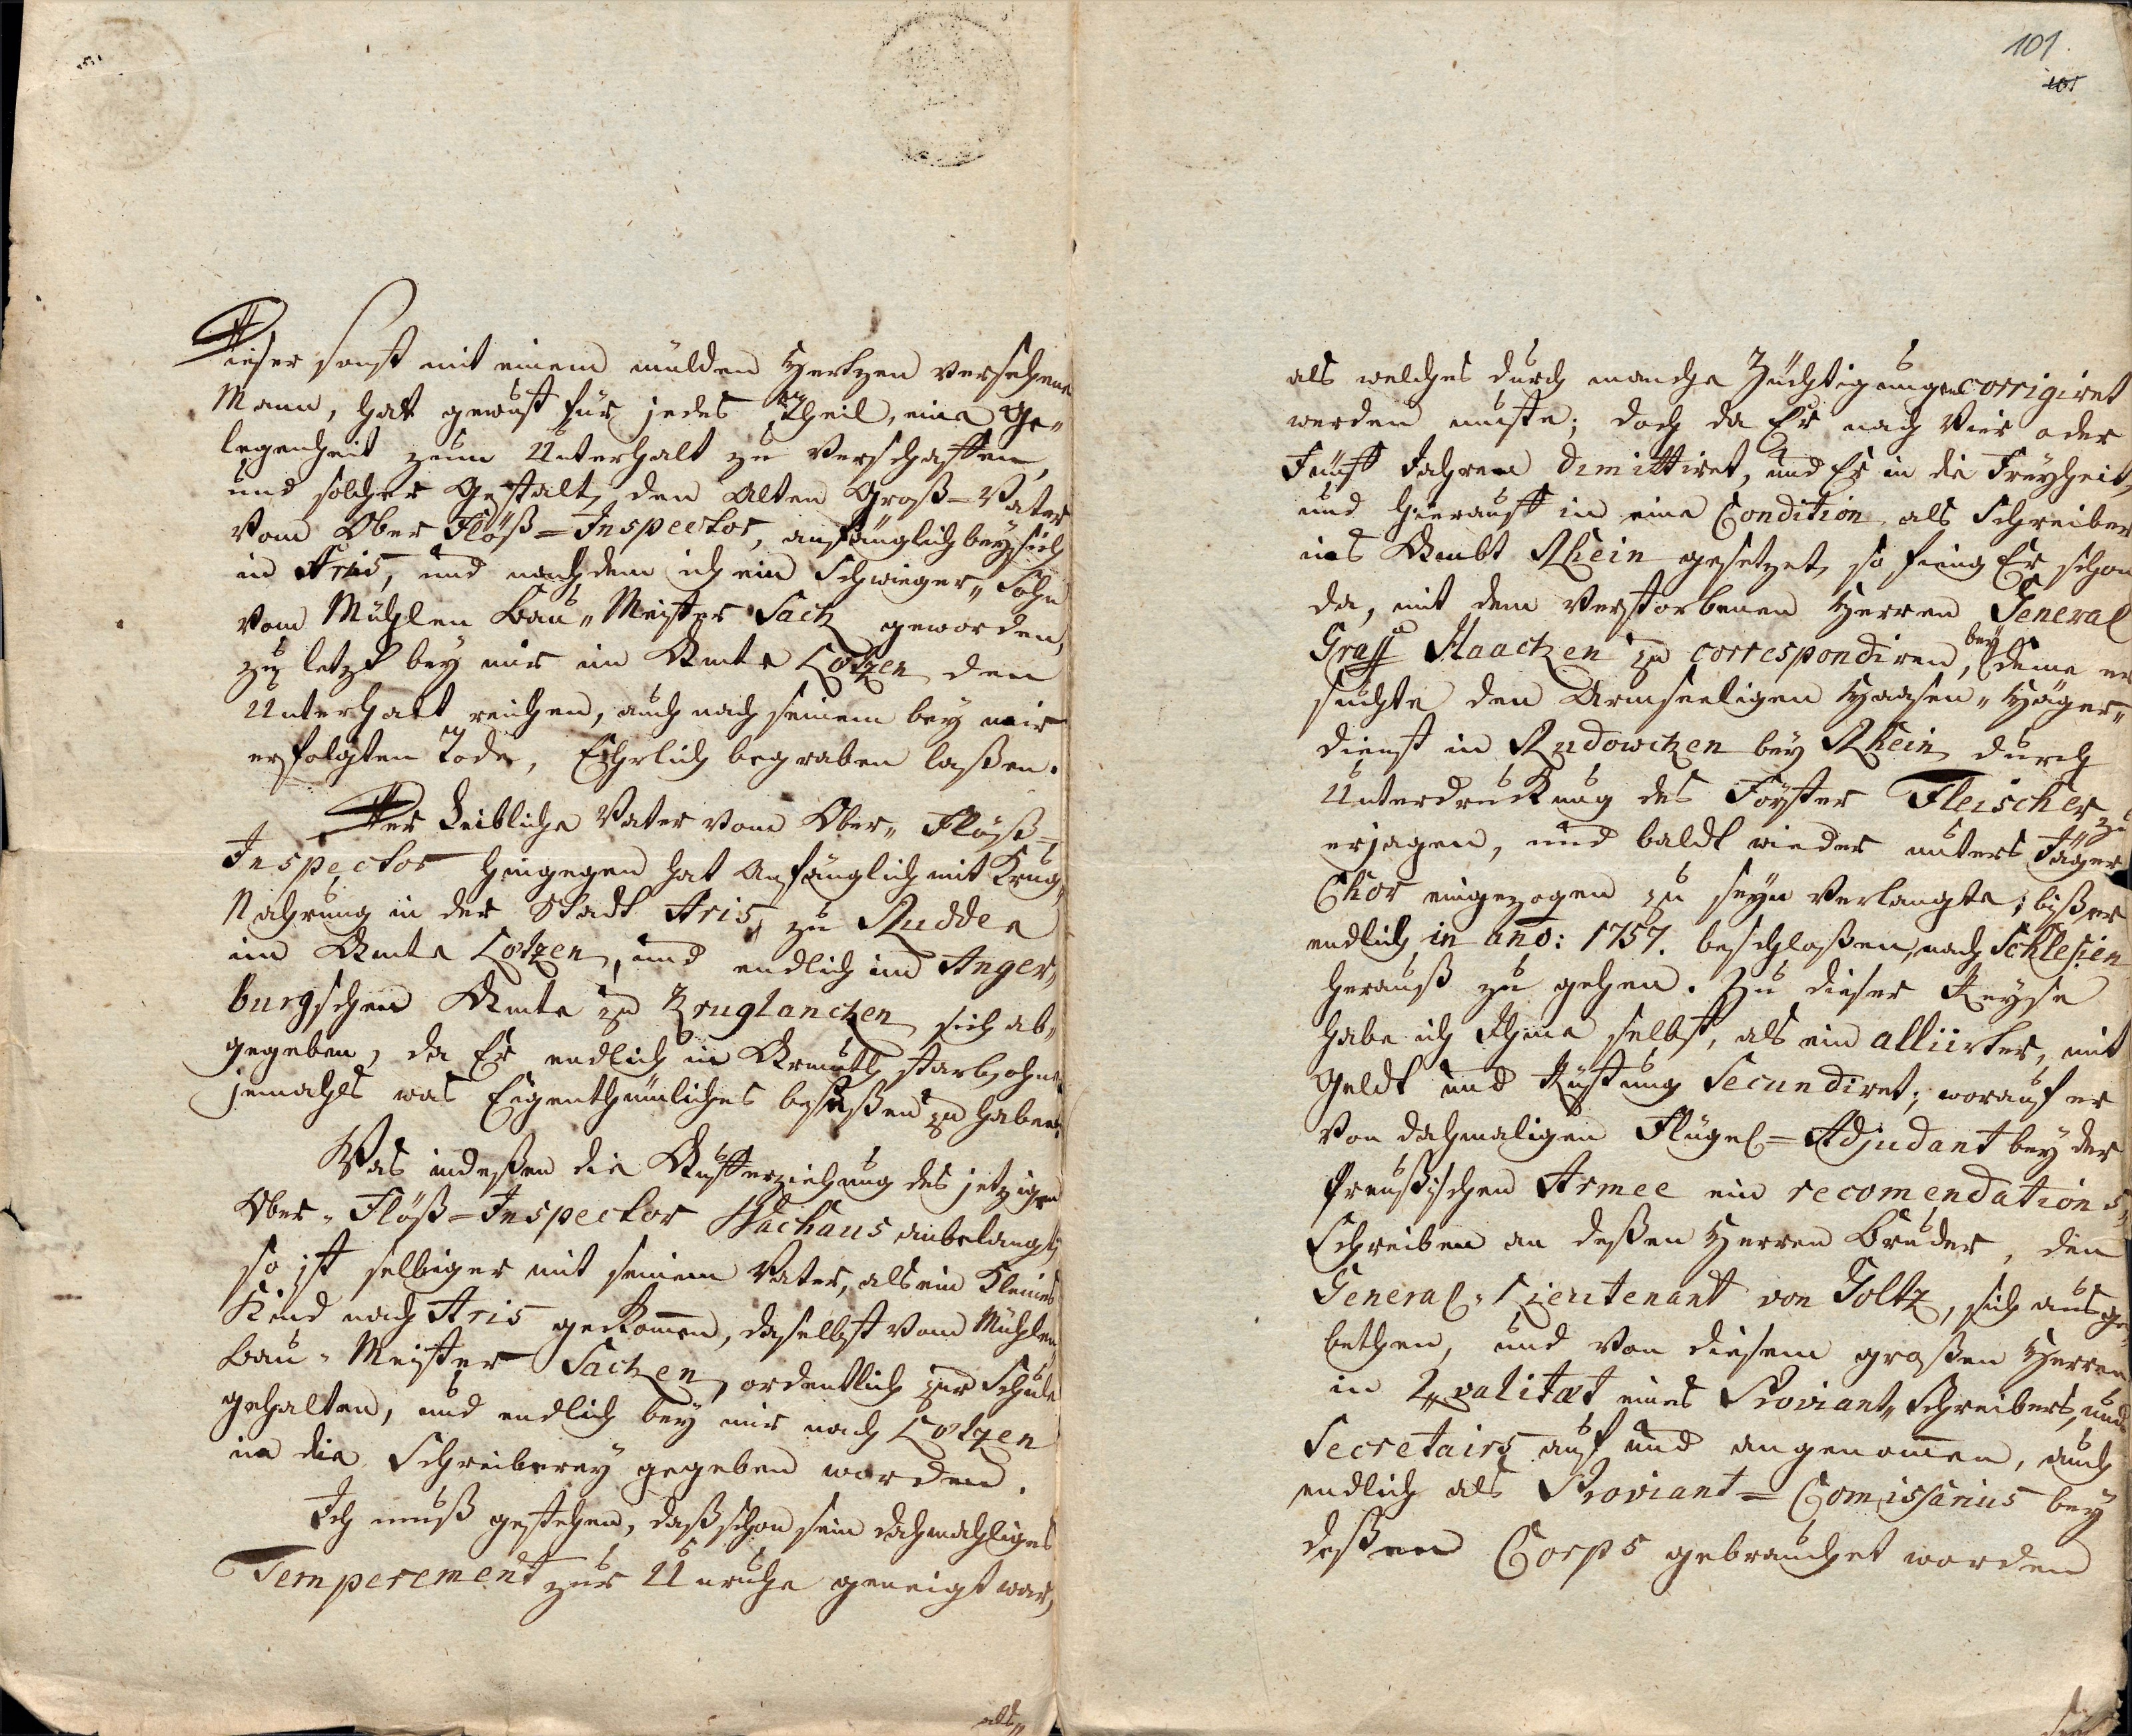 Dieser sonst mit einem milden Hertzen versehene
Mann, hat gewust für jedes Theil, eine Ge-
legenheit zum Unterhalt zu verschaffen,
und solcher Gestalt, den alten Groß-Vater
vom Ober Flöß-Inspector, anfänglich bey sich
in Aris, und nachdem ich ein Schwieger-Sohn
vom Mühlen Bau-Meister Sack geworden,
zu letzt bey mir im Amte Lötzen den
Unterhalt reichen, auch nach seinem bey mir
erfolgten Tode, Ehrlich begraben laßen.
Der Leibliche Vater vom Ober-Flöß-
Inspector hingegen hat anfänglich mit Krug-
Nahrung in der Stadt Aris, zu Rudden
im Amte Lötzen, und endlich im Anger-
burgschen Amte zu Kruglancken sich ab-
gegeben, da Er endlich in Armuth starb, ohne
jemahls was Eigenthümliches beseßen zu haben.
Was indeßen die Aufferziehung des jetzigen
Ober-Flöß-Inspector Hachaus anbelangt,
so ist selbiger mit seinem Vater, als ein Kleines
Kind nach Aris gekomen, daselbst vom Mühlen
Bau-Meister Sacken, ordentlich zur Schule
gehalten, und endlich bey mir nach Lötzen
in die Schreiberey gegeben worden.
Ich muß gestehen, daß schon sein dahmahliges
Temperement zur Unruhe geneigt war,
als
101
101
als welches durch manche Züchtigungen corrigiret
werden muste; doch da Er nach Vier oder
Fünff Jahren dimittiret, und Er in die Freyheit,
und hierauff in eine Condition als Schreiber
ins Ambt Rhein gesetzet, so fieng Er schon
da, mit dem verstorbenen Herren General
Graff Haacken zu correspondiren, bey deme er
suchte den Armseeligen Haasen-Häger-
dienst in Rudowcken bey Rhein durch
Unterdruckung des Förster Fleischer zu
erjagen, und baldt wieder unters Jäger
Chor eingezogen zu seyn verlangte; biß er
endlich in año: 1757. beschloßen, nach Schlesien
herauß zu gehen. Zu dieser Reyse
habe ich Ihme selbst, als ein alliirter, mit
Geldt und Rüstung Secundiret; worauf er
von dahmaligen Flügel-Adjudant bey der
Preußischen Armee ein recomendations
Schreiben an deßen Herren Bruder, den
General-Lieutenant von Goltz, sich ausge-
bethen, und von diesem großen Herren
in Qvalitæt eines Proviant-Schreibers, und
Secretairs auf und angenomen, auch
endlich als Proviant-Comissarius bey
deßen Corps gebrauchet worden